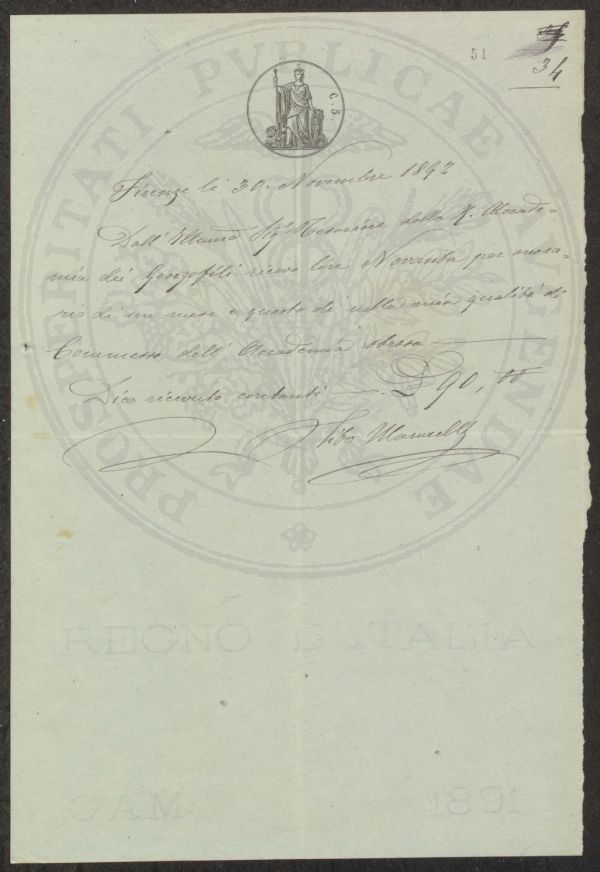 51
34
C. 5.
PROSPERITATI PVBLICAE AVGENDAE
Firenze li 30. Novembre 1892
Dall' Illmo Sigr Tesoriere della R. Accade-
mia dei Georgofili ricevo lire Novanta per onora-
rio di un mese a questo dì nella mia qualità di
Commesso dell' Accademia stessa
Dico ricevuto contanti — £ 90, 00
REGNO D'ITALIA
1891